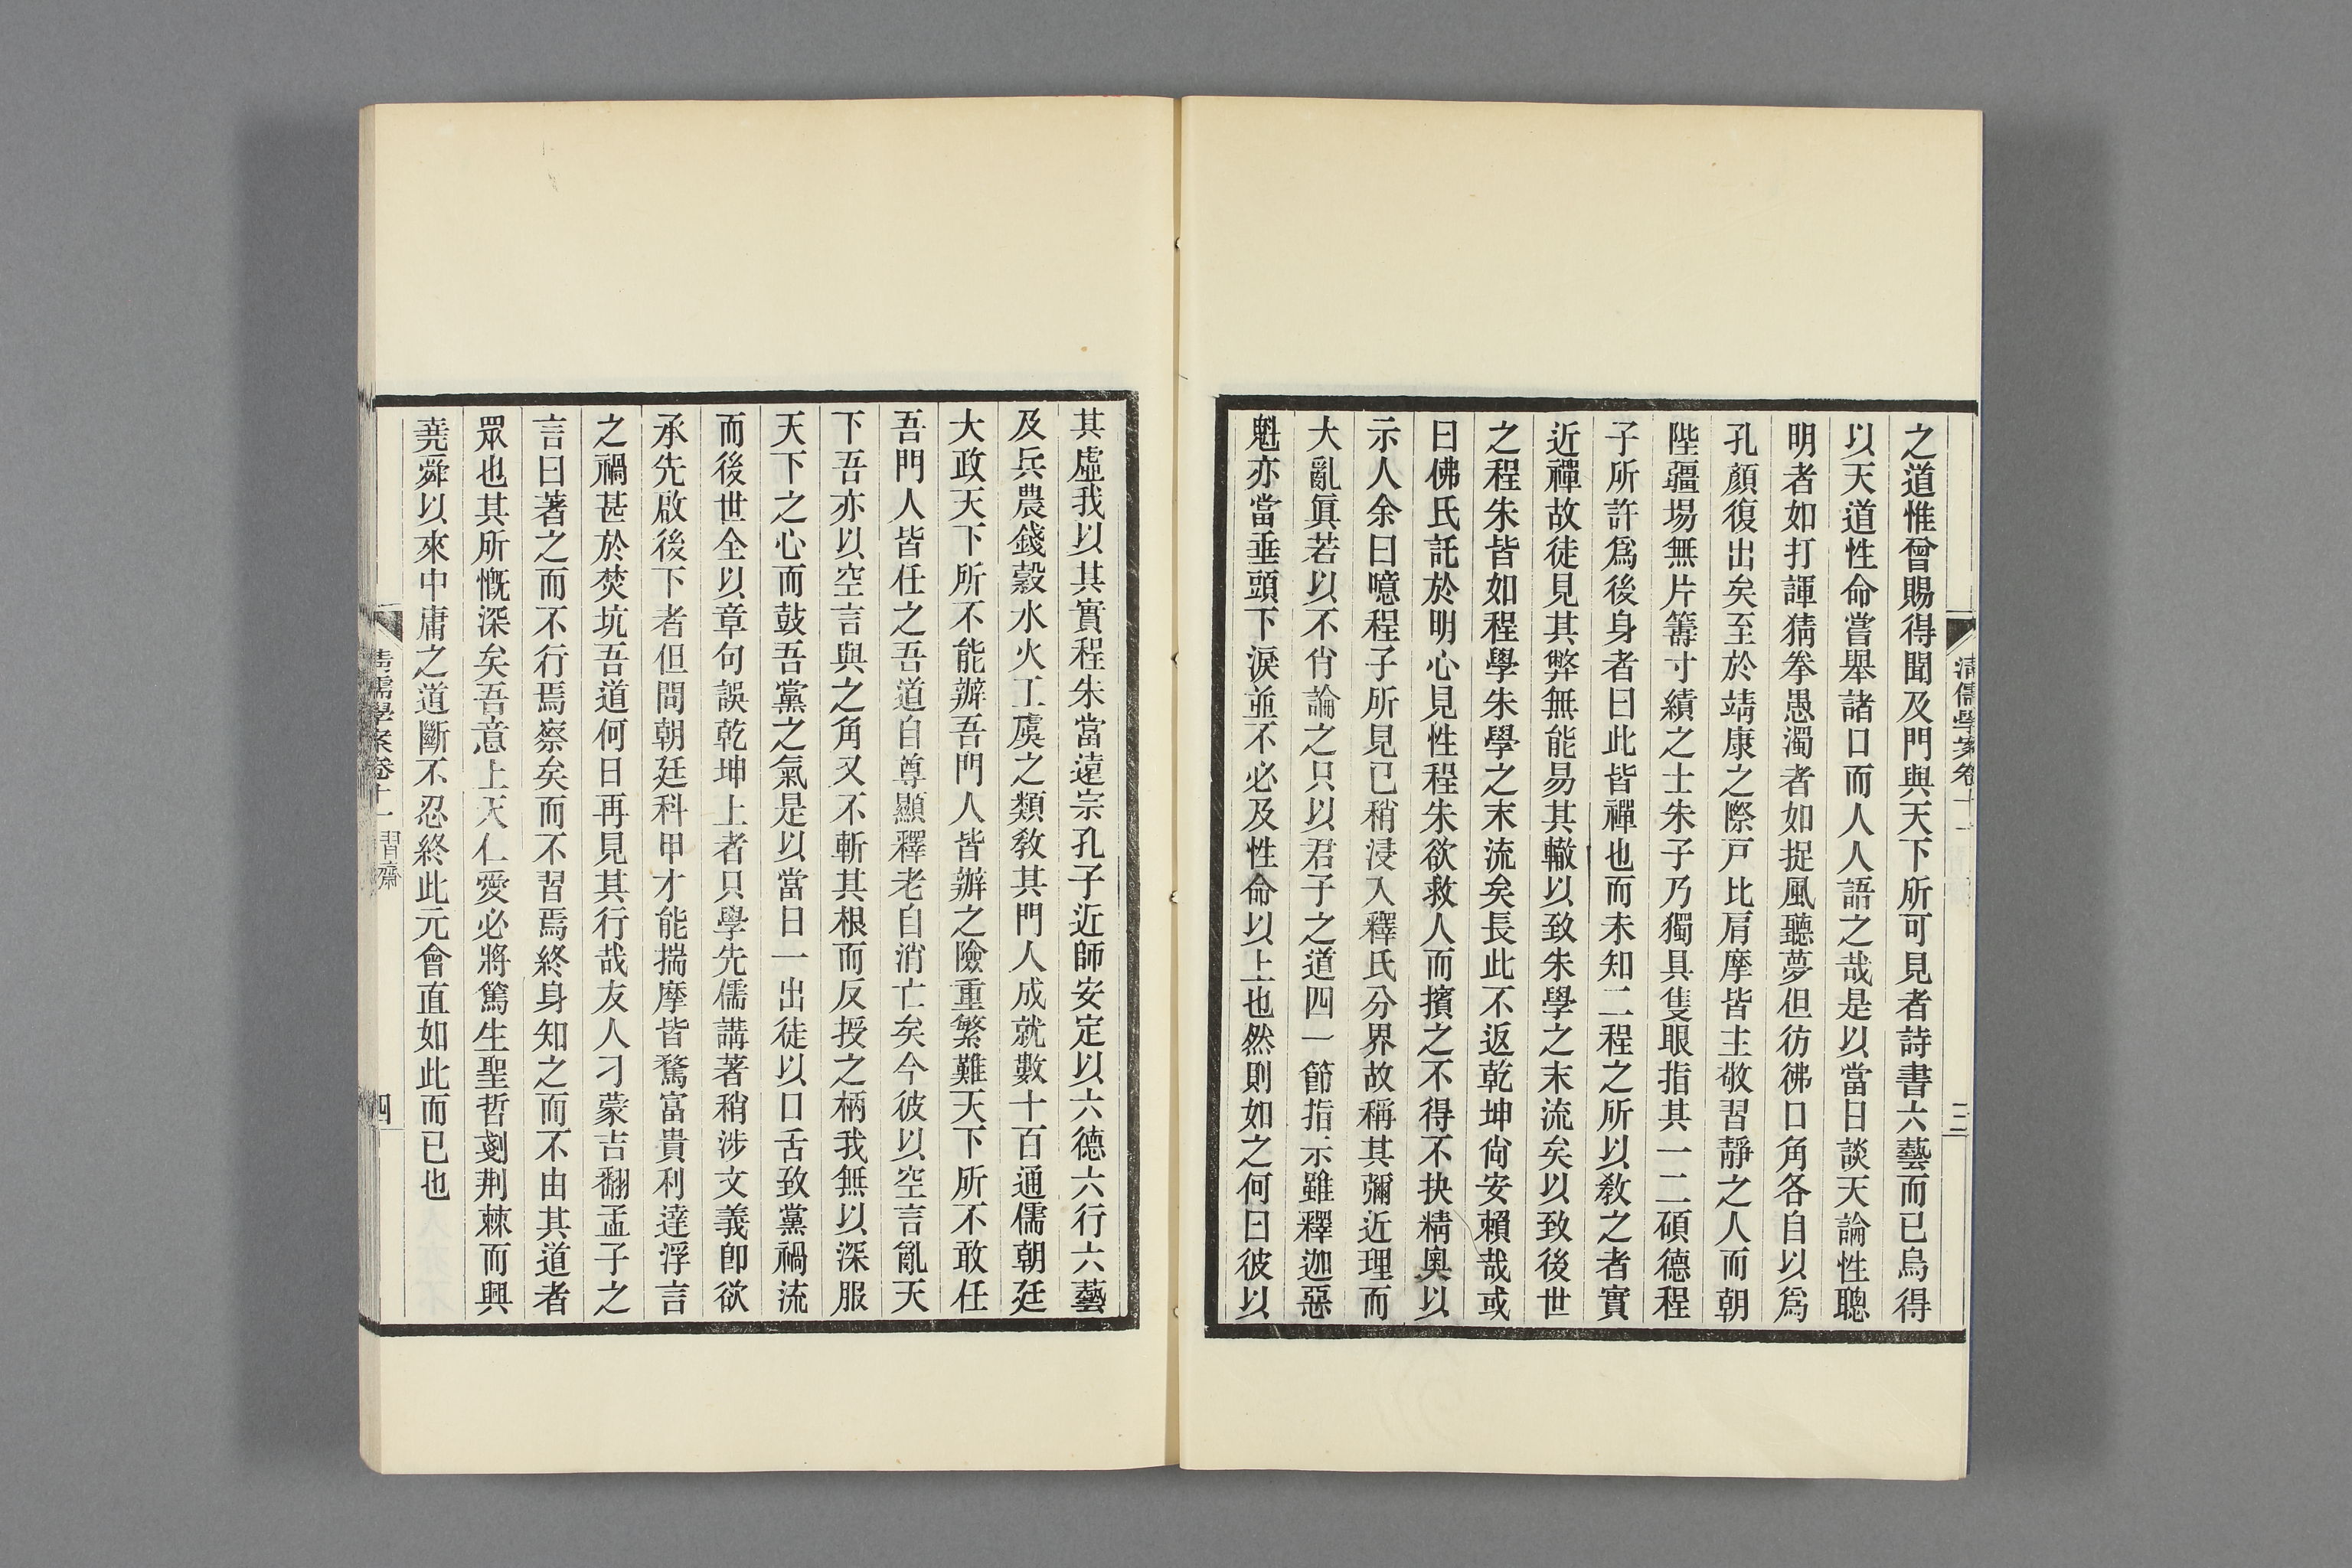 清儒學案卷十一
三
之道惟曾賜得聞及門與天下所可見者詩書六藝而已烏得
以天道性命嘗舉諸口而人人語之哉是以當日談天論性聰
明者如打諢猜拳愚濁者如捉風聽夢但彷彿口角各自以爲
孔顏復出矣至於靖康之際戸比肩摩皆主敬習靜之人而朝
陛疆埸無片籌寸績之士朱子乃獨具隻眼指其一二碩德程
子所許爲後身者曰此皆禪也而未知二程之所以敎之者實
近禪故徒見其弊無能易其轍以致朱學之末流矣以致後世
之程朱皆如程學朱學之末流矣長此不返乾坤尙安賴哉或
曰佛氏託於明心見性程朱欲救人而擯之不得不抉精奧以
示人余曰噫程子所見已稍浸入釋氏分界故稱其彌近理而
大亂眞若以不肖論之只以君子之道四一節指示雖釋迦惡
魁亦當垂頭下淚並不必及性命以上也然則如之何曰彼以
其虛我以其實程朱當遠宗孔子近師安定以六德六行六藝
及兵農錢穀水火工虞之類敎其門人成就數十百通儒朝廷
大政天下所不能辦吾門人皆辦之險重繁難天下所不敢任
吾門人皆任之吾道自尊顯釋老自消亡矣今彼以空言亂天
下吾亦以空言與之角又不斬其根而反授之柄我無以深服
天下之心而鼓吾黨之氣是以當日一出徒以口舌致黨禍流
而後世全以章句誤乾坤上者只學先儒講著稍涉文義卽欲
承先啟後下者但問朝廷科甲才能揣摩皆騖富貴利達浮言
之禍甚於焚坑吾道何日再見其行哉友人刁蒙吉翻孟子之
言曰著之而不行焉察矣而不習焉終身知之而不由其道者
眾也其所慨深矣吾意上天仁愛必將篤生聖哲剗荆棘而興
堯舜以來中庸之道斷不忍終此元會直如此而已也
清儒學案卷十一 習齋
四